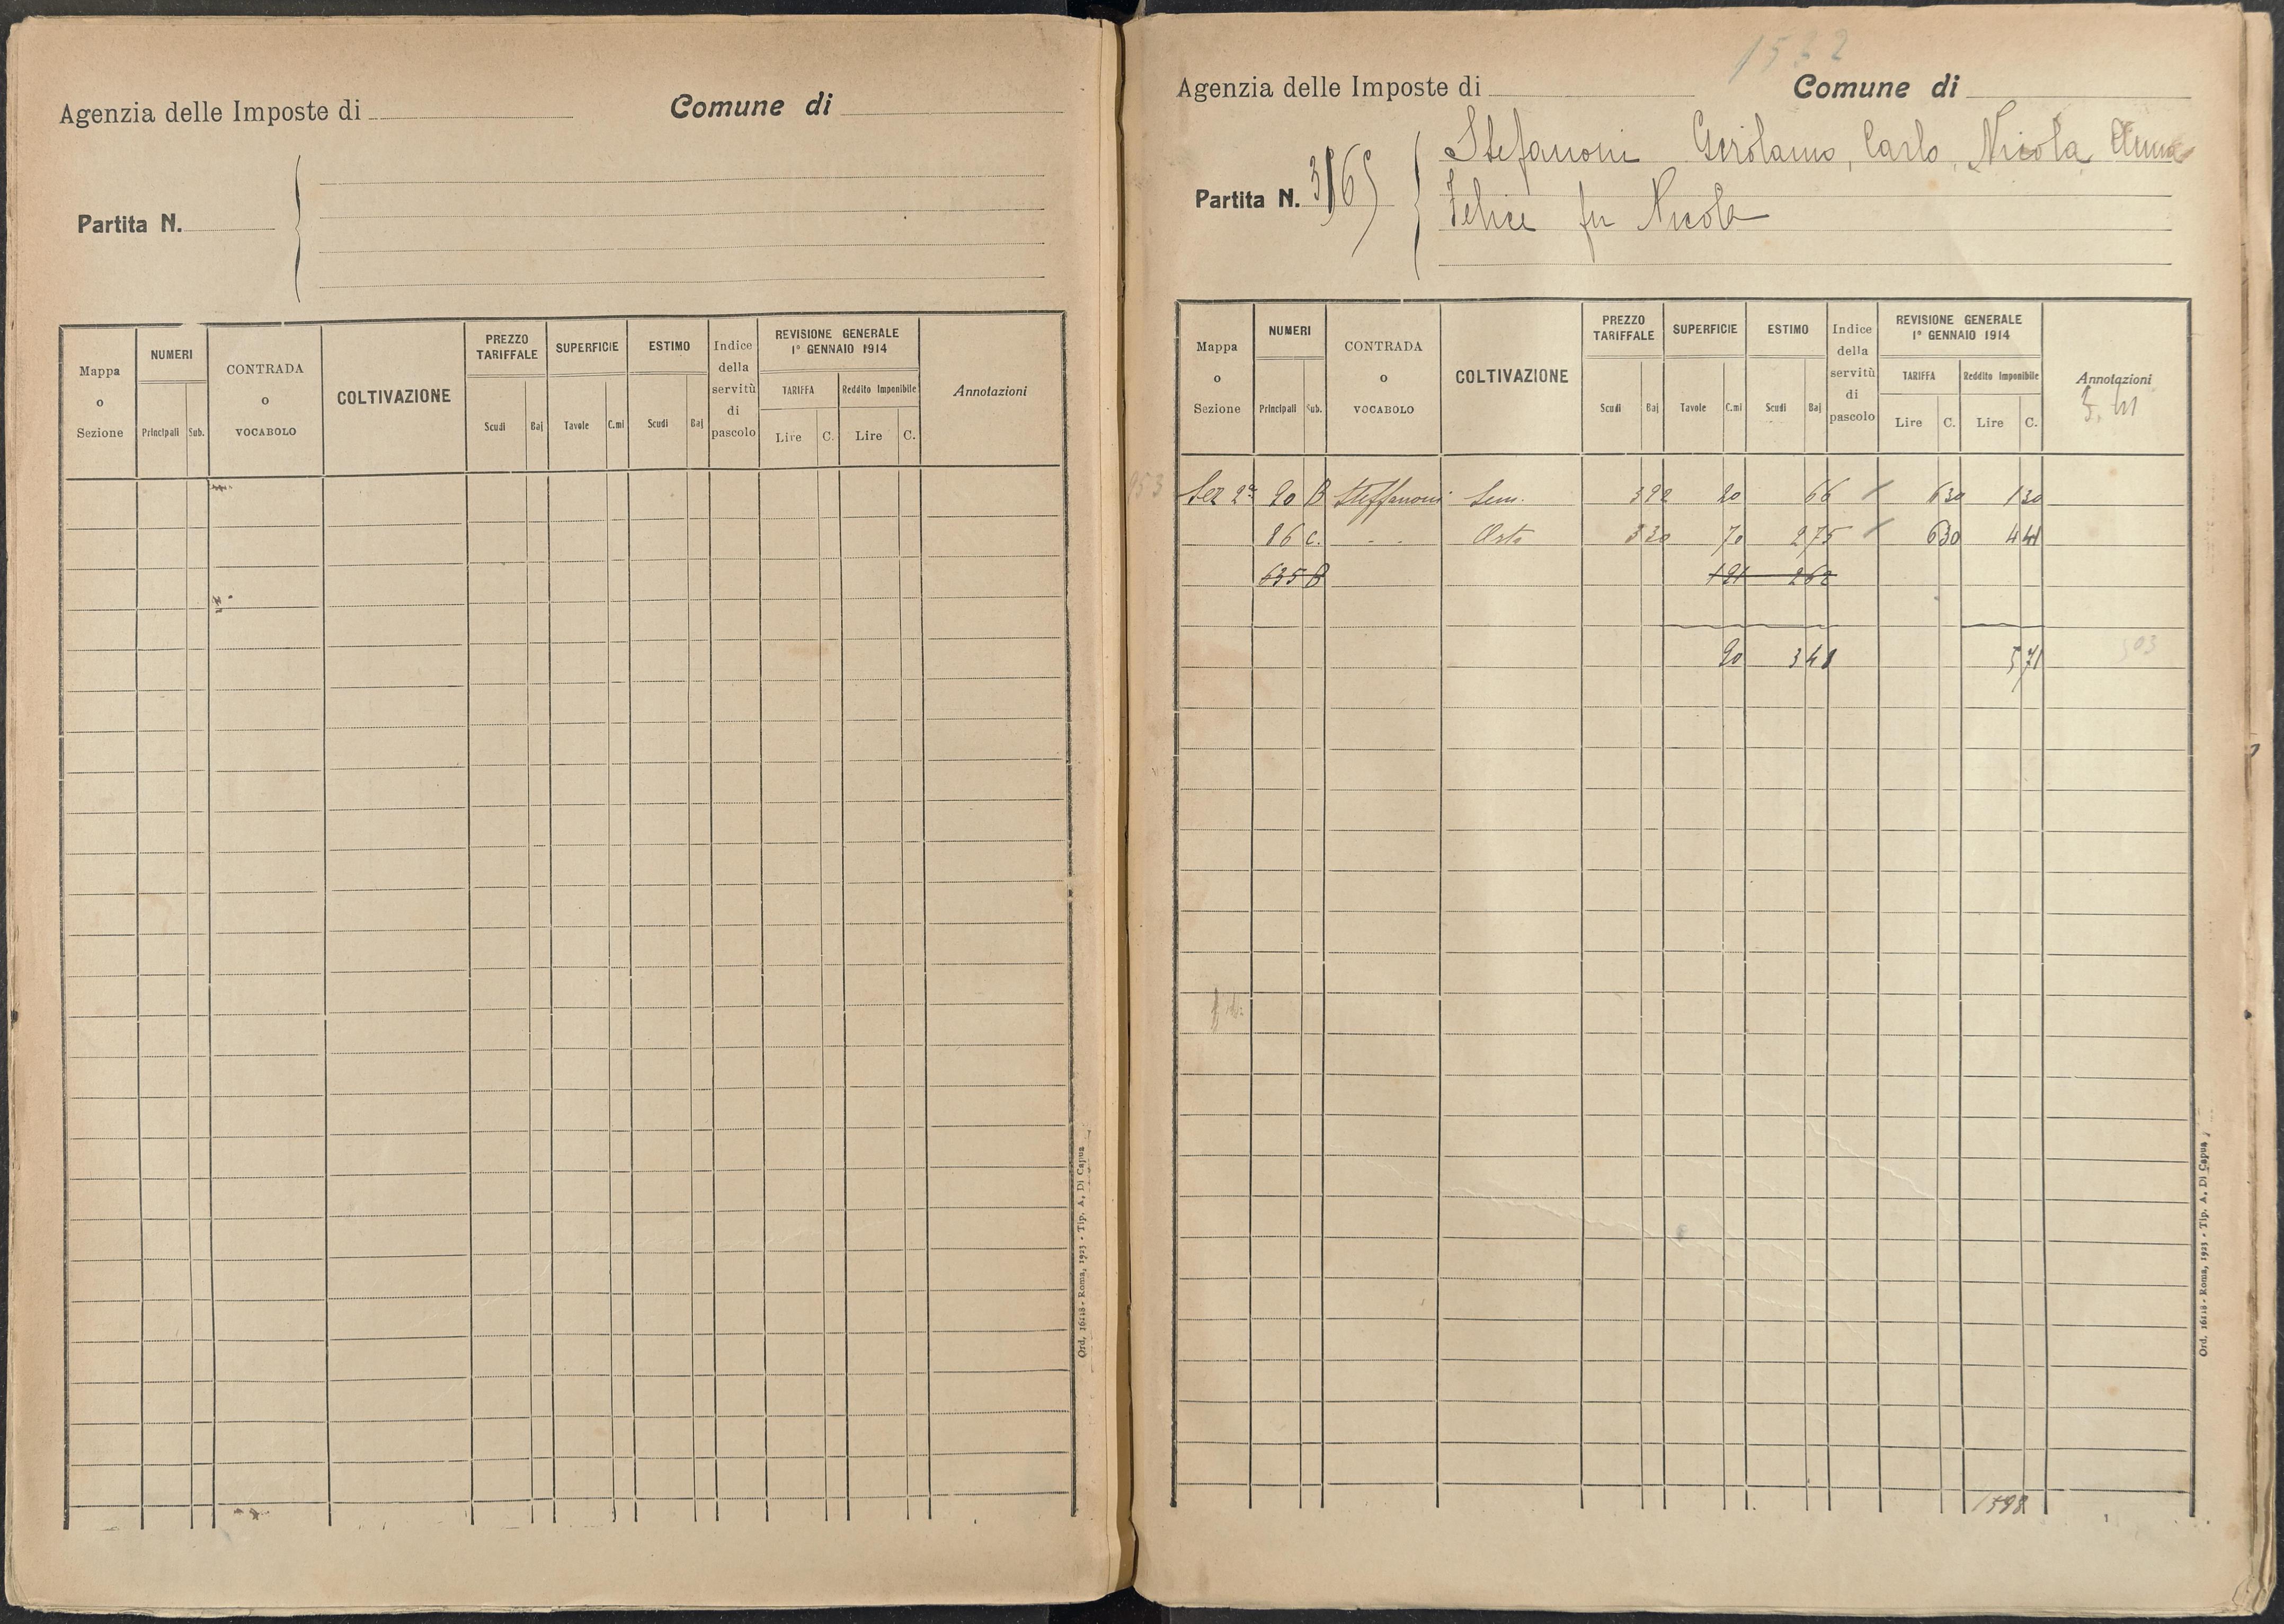 Agenzia delle Imposte di
Comune di
Partita N.
Mappa o Sezione
NUMERI
Principali
Sub.
CONTRADA o VOCABOLO
COLTIVAZIONE
PREZZO TARIFFALE
Scudi
Baj
SUPERFICIE
Tavole
C.mi
ESTIMO
Scudi
Baj
Indice della servitù di pascolo
REVISIONE GENERALE
1° GENNAIO 1914
TARIFFA
Reddito Imponibile
Lire
C.
Lire
C.
Annotazioni
Ord. 16118 - Roma, 1923 - Tip. A. Di Capua
Agenzia delle Imposte di
Comune di
Partita N.
Stefanoni Girolamo, Carlo, Nicola, Anna
Felice fu Nicola
Mappa o Sezione
NUMERI
Principali
Sub.
CONTRADA o VOCABOLO
COLTIVAZIONE
PREZZO TARIFFALE
Scudi
Baj
SUPERFICIE
Tavole
C.mi
ESTIMO
Scudi
Baj
Indice della servitù di pascolo
REVISIONE GENERALE
1° GENNAIO 1914
TARIFFA
Reddito Imponibile
Lire
C.
Lire
C.
Annotazioni
Sez 2ª 90 B Steffanoni Sem. 20 66 630 130
86 c. Orto 70 275 630 441
635 B 262
90 341 571
1598
Ord. 16118 - Roma, 1923 - Tip. A. Di Capua